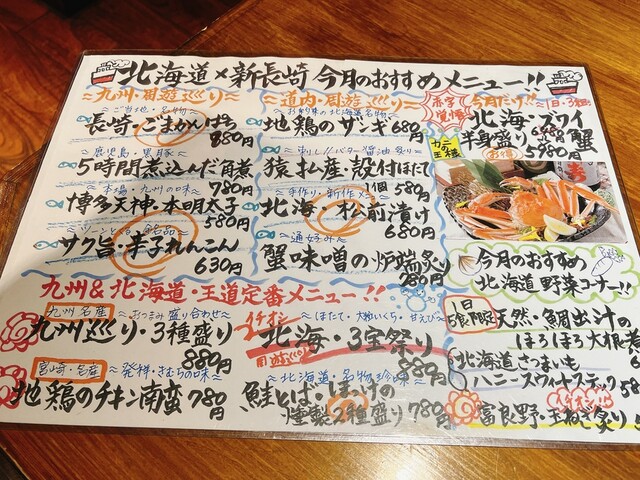 北海道×新長崎 今月のおすすめメニュー!!
九州・周遊巡り
ご当地・名物
長崎・ごまかんぱち
880円
鹿児島・黒豚
5時間煮込んだ角煮
780円
本場・九州の味
博多天神・本明太子
580円
ツーンとくる銘品
サク旨・辛子れんこん
630円
道内・周遊巡り
北海道名物
地鶏のザンギ 680円
刺し!!バター醤油炙り
猿払産・殻付ほたて
1個580円
手作り・新作
北海・松前漬け
680円
通好み
蟹味噌の炉端炙り
780円
赤字で覚悟
今月だけ
1日・3組
北海・ズワイ
半身盛り
蟹
カニの王様
今月のおすすめ
北海道野菜コーナー!!
1日5食限定
天然・鯛出汁の
ほろほろ大根煮
北海道さつまいも
ハニースウィートスティック
イチオシ!!
富良野・玉ねぎ炙り
九州&北海道・王道定番メニュー!!
九州名産
おつまみ盛り合わせ
九州巡り・3種盛り
880円
宮崎・名産
発祥・きむらの味
地鶏のチキン南蛮 780円
イチオシ
ほたて・大粒いくら・甘えび
北海・3宝祭り
周遊巡り
880円
北海道・名物珍味
鮭とば・ほっけの
燻製2種盛り 780円